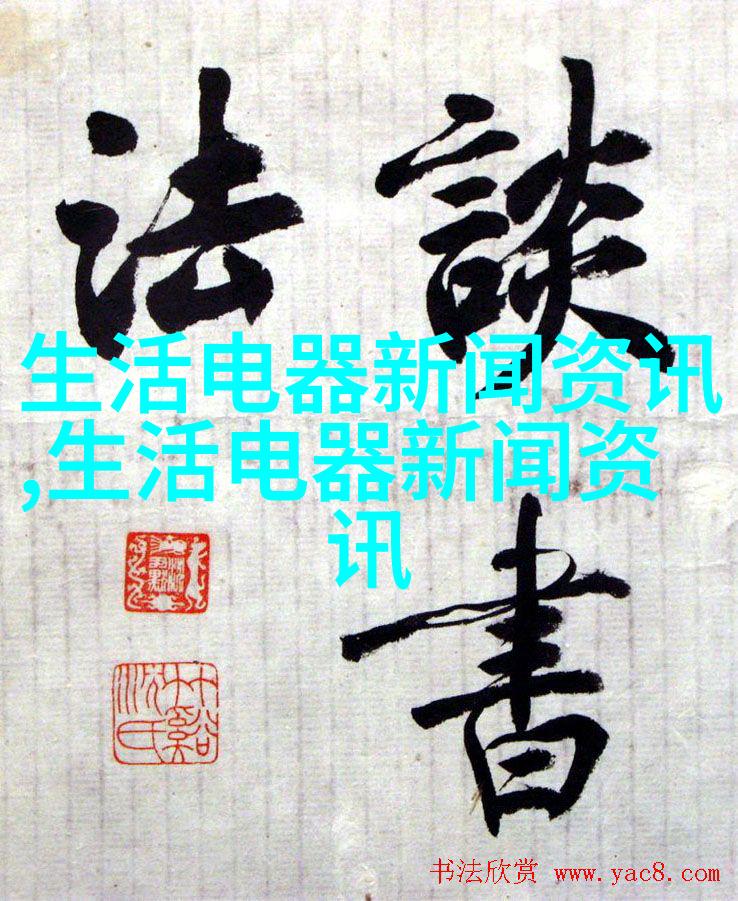 談書
法
生活电器新闻资讯
,生活电器新闻资
讯
书法欣赏 www.yac8.com